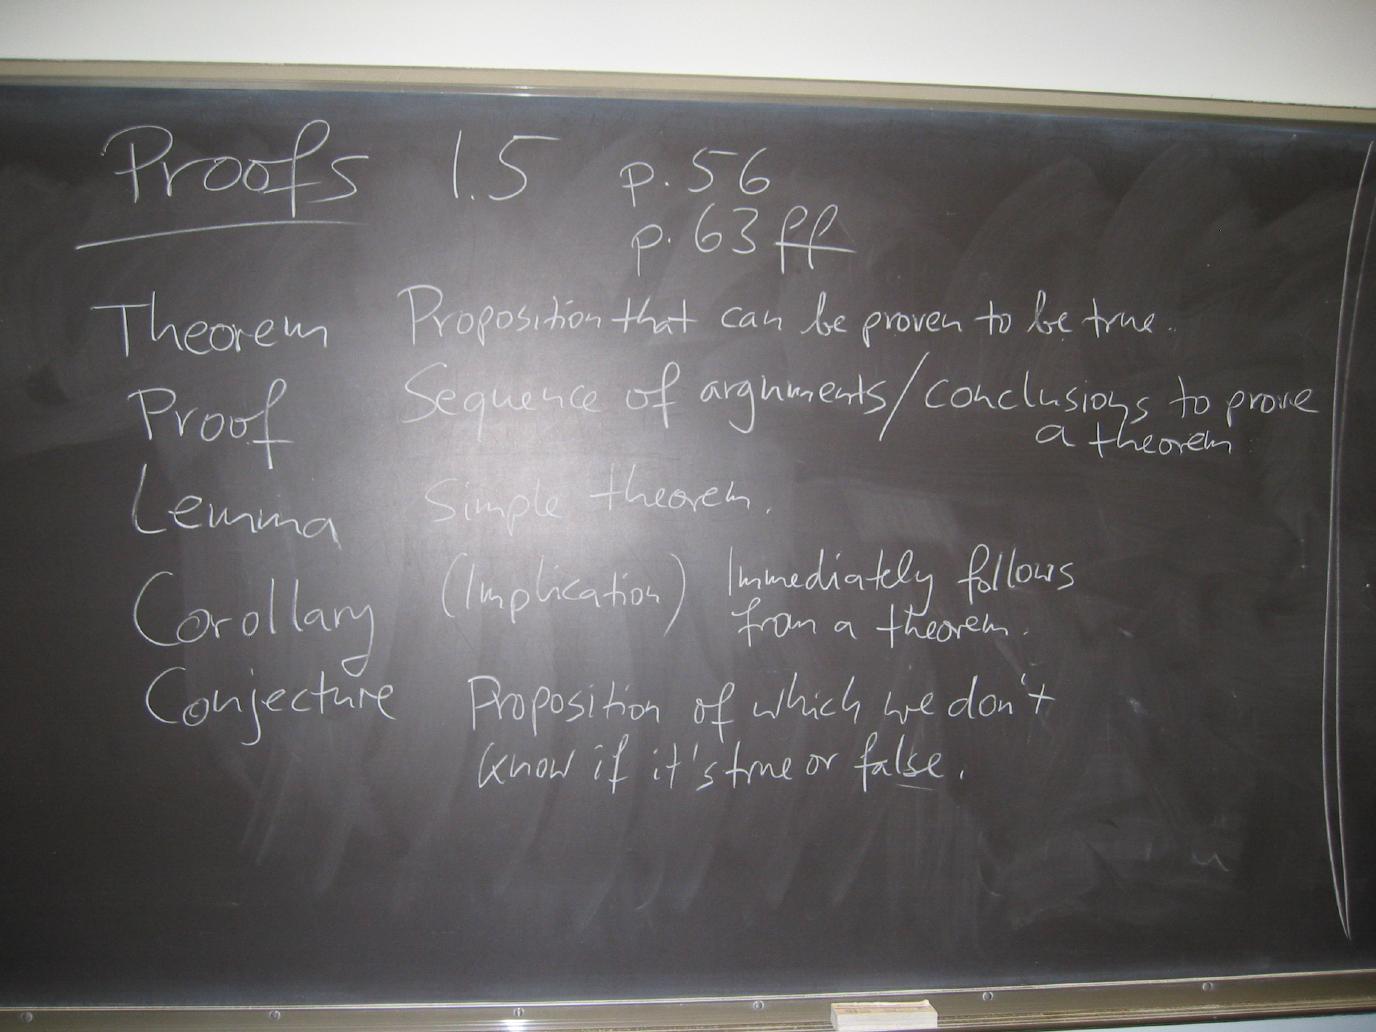 Proofs 1.5 p. 56
p. 63 ff
Theorem Proposition that can be proven to be true.
Proof Sequence of arguments/conclusions to prove
a theorem
Lemma Simple theorem.
Corollary (Implication) Immediately follows
from a theorem.
Conjecture Proposition of which we don't
know if it's true or false.